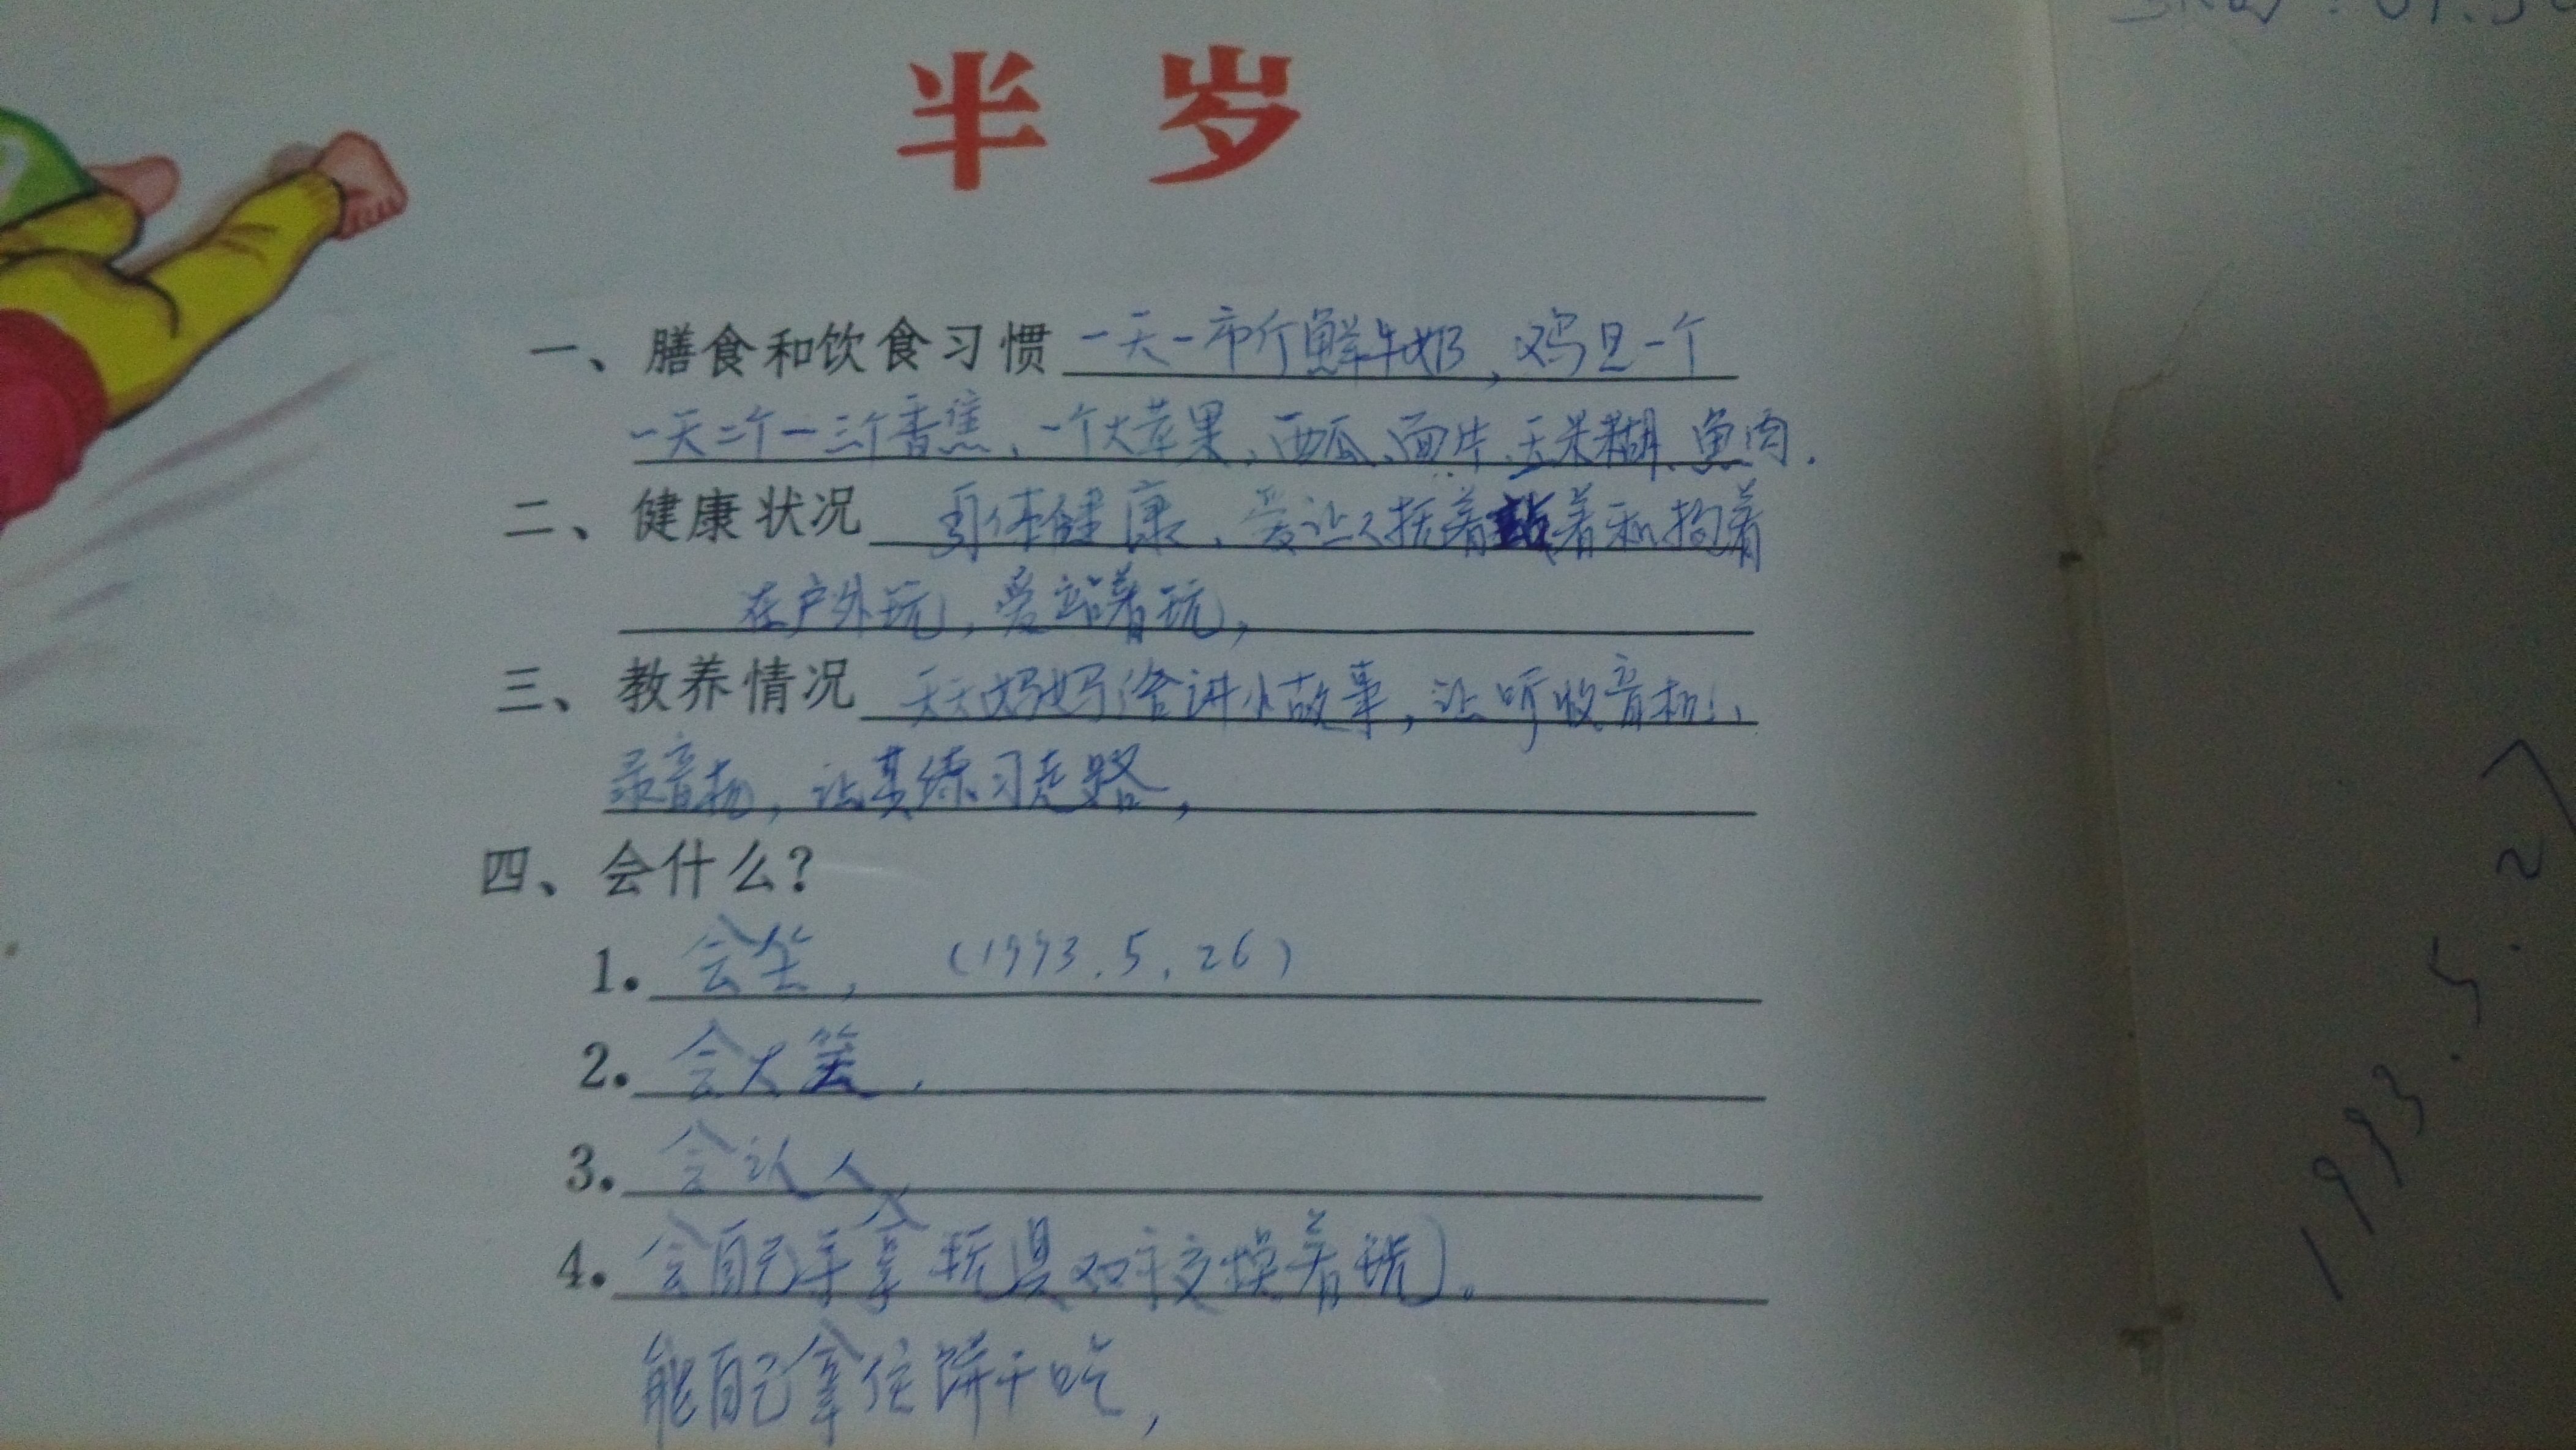 半岁
一、膳食和饮食习惯 一天一市斤鲜牛奶，鸡旦一个
一天二个一三个香焦、一个大苹果、西瓜、面片、玉米糊、鱼肉.
二、健康状况 身体健康、爱让人抚着站着和抱着
在户外玩，爱站着玩，
三、教养情况 天天妈妈给讲小故事，让听收音机、
录音机，让其练习走路，
四、会什么？
1. 会坐， (1993.5.26)
2. 会大笑，
3. 会认人
4. 会自己手拿玩具双手交换着玩。
能自己拿住饼干吃，
1993.5.2